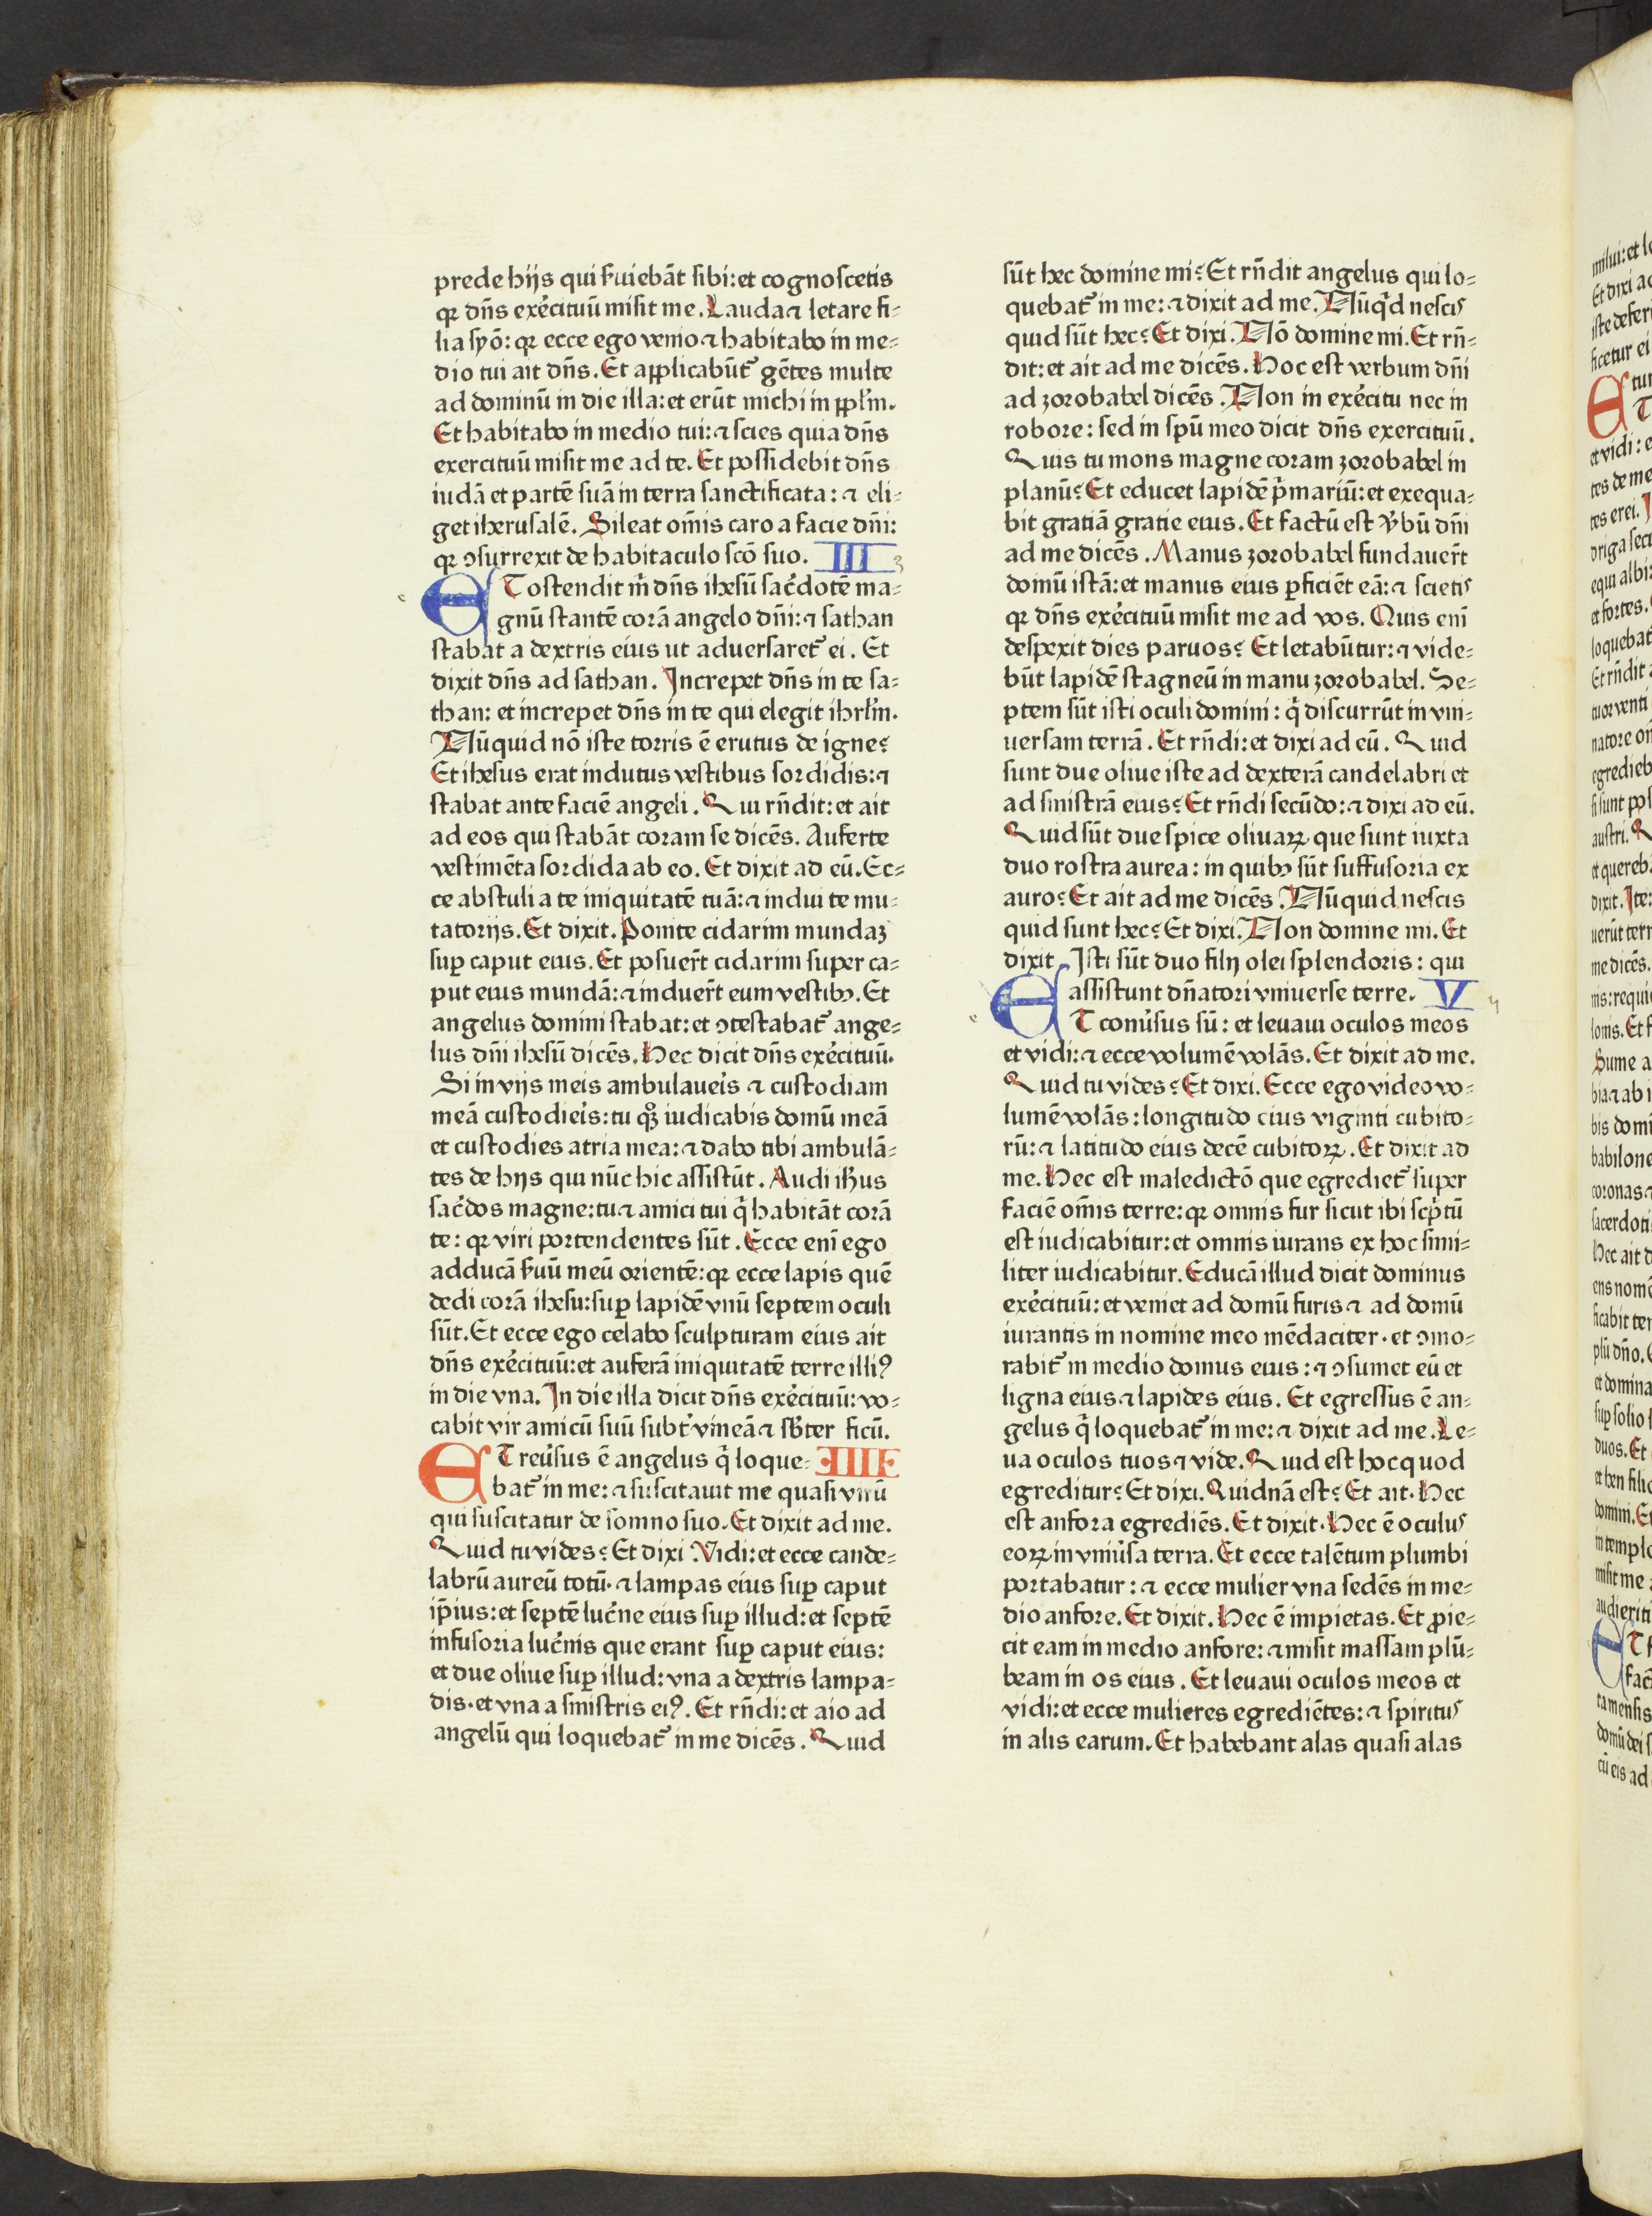 prede hijs qui s̃uiebãt sibi: et cognoscetis
qꝛ dñs exẽcituũ misit me. Lauda ⁊ letare fi⸗
lia syõ: qꝛ ecce ego venio ⁊ habitabo in me⸗
dio tui ait dñs. Et applicabũt᷑ gẽtes multe
ad dominũ in die illa: et erũt michi in ppl̃m.
Et habitabo in medio tui: ⁊ scies quia dñs
exercituũ misit me ad te. Et possidebit dñs
iudã et partẽ suã in terra sanctificata: ⁊ eli⸗
get iherusalẽ. Sileat om̃is caro a facie dñi:
qꝛ ↄsurrexit de habitaculo scõ suo. III 3
ET ostendit m̃ dñs ihesũ sac̃dotẽ ma⸗
gnũ stantẽ corã angelo dñi: ⁊ sathan
stabat a dextris eius ut aduersaret᷑ ei. Et
dixit dñs ad sathan. Increpet dñs in te sa⸗
than: et increpet dñs in te qui elegit ihrl̃m.
Nũquid nõ iste torris ẽ erutus de igne?
Et ihesus erat indutus vestibus sordidis: ⁊
stabat ante faciẽ angeli. Qui rñdit: et ait
ad eos qui stabãt coram se dicẽs. Auferte
vestimẽta sordida ab eo. Et dixit ad eũ. Ec⸗
ce abstuli a te iniquitatẽ tuã: ⁊ indui te mu⸗
tatorijs. Et dixit. Ponite cidarim mundaꝫ
suꝑ caput eius. Et posuer̃t cidarim super ca⸗
put eius mundã: ⁊ induer̃t eum vestibꝫ. Et
angelus domini stabat: et ↄtestabat᷑ ange⸗
lus dñi ihesũ dicẽs. Hec dicit dñs exẽcituũ.
Si in vijs meis ambulaueis̃ ⁊ custodiam
meã custodieis̃: tu qꝫ iudicabis domũ meã
et custodies atria mea: ⁊ dabo tibi ambulã⸗
tes de hijs qui nũc hic assistũt. Audi ihus̃
sac̃dos magne: tu ⁊ amici tui q̃ habitãt corã
te: qꝛ viri portendentes sũt. Ecce enĩ ego
adducã s̃uũ meũ orientẽ: qꝛ ecce lapis quẽ
dedi corã ihesu: suꝑ lapidẽ vnũ septem oculi
sũt. Et ecce ego celabo sculpturam eius ait
dñs exẽcituũ: et auferã iniquitatẽ terre illiꝰ
in die vna. In die illa dicit dñs exẽcituũ: vo⸗
cabit vir amicũ suũ subt̃ vineã ⁊ sb̃ter ficũ.
ET reũsus ẽ angelus q̃ loque⸗ IIII
bat᷑ in me: ⁊ suscitauit me quasi virũ
qui suscitatur de somno suo. Et dixit ad me.
Quid tu vides? Et dixi Vidi: et ecce cande⸗
labrũ aureũ totũ. ⁊ lampas eius suꝑ caput
ip̃ius: et septẽ luc̃ne eius suꝑ illud: et septẽ
infusoria luc̃nis que erant suꝑ caput eius:
et due oliue suꝑ illud: vna a dextris lampa⸗
dis. et vna a sinistris eiꝰ. Et rñdi: et aio ad
angelũ qui loquebat᷑ in me dicẽs. Quid
sũt hec domine mi? Et rñdit angelus qui lo⸗
quebat᷑ in me: ⁊ dixit ad me. Nũqd̃ nescis
quid sũt hec? Et dixi. Nõ domine mi. Et rñ⸗
dit: et ait ad me dicẽs. Hoc est verbum dñi
ad zorobabel dicẽs. Non in exẽcitu nec in
robore: sed in spũ meo dicit dñs exercituũ.
Quis tu mons magne coram zorobabel in
planũ? Et educet lapidẽ p̃mariũ: et exequa⸗
bit gratiã gratie eius. Et factũ est v̾bũ dñi
ad me dicẽs. Manus zorobabel fundauer̃t
domũ istã: et manus eius ꝑficiẽt eã: ⁊ scietis
qꝛ dñs exẽcituũ misit me ad vos. Quis enĩ
despexit dies paruos? Et letabũtur: ⁊ vide⸗
bũt lapidẽ stagneũ in manu zorobabel. Se⸗
ptem sũt isti oculi domini: q̃ discurrũt in vni⸗
uersam terrã. Et rñdi: et dixi ad eũ. Quid
sunt due oliue iste ad dexterã candelabri et
ad sinistrã eius? Et rñdi secũdo: ⁊ dixi ad eũ.
Quid sũt due spice oliuaꝝ que sunt iuxta
duo rostra aurea: in quibꝫ sũt suffusoria ex
auro? Et ait ad me dicẽs. Nũquid nescis
quid sunt hec? Et dixi. Non domine mi. Et
dixit. Isti sũt duo filij olei splendoris: qui
assistunt dñatori vniuerse terre. V
ET conũsus sũ: et leuaui oculos meos
et vidi: ⁊ ecce volumẽ volãs. Et dixit ad me.
Quid tu vides? Et dixi. Ecce ego video vo⸗
lumẽ volãs: longitudo eius viginti cubito⸗
rũ: ⁊ latitudo eius decẽ cubitoꝝ. Et dixit ad
me. Hec est maledictõ que egrediet᷑ super
faciẽ om̃is terre: qꝛ omnis fur sicut ibi scp̃tũ
est iudicabitur: et omnis iurans ex hoc simi⸗
liter iudicabitur. Educã illud dicit dominus
exẽcituũ: et veniet ad domũ furis ⁊ ad domũ
iurantis in nomine meo mẽdaciter. et ↄmo⸗
rabit᷑ in medio domus eius: ⁊ ↄsumet eũ et
ligna eius ⁊ lapides eius. Et egressus ẽ an⸗
gelus q̃ loquebat᷑ in me: ⁊ dixit ad me. Le⸗
ua oculos tuos ⁊ vide. Quid est hoc quod
egreditur? Et dixi. Quidnã est? Et ait. Hec
est anfora egrediẽs. Et dixit. Hec ẽ oculus
eoꝝ in vniũsa terra. Et ecce talẽtum plumbi
portabatur: ⁊ ecce mulier vna sedẽs in me⸗
dio anfore. Et dixit. Hec ẽ impietas. Et ꝓie⸗
cit eam in medio anfore: ⁊ misit massam plũ⸗
beam in os eius. Et leuaui oculos meos et
vidi: et ecce mulieres egrediẽtes: ⁊ spiritus
in alis earum. Et habebant alas quasi alas